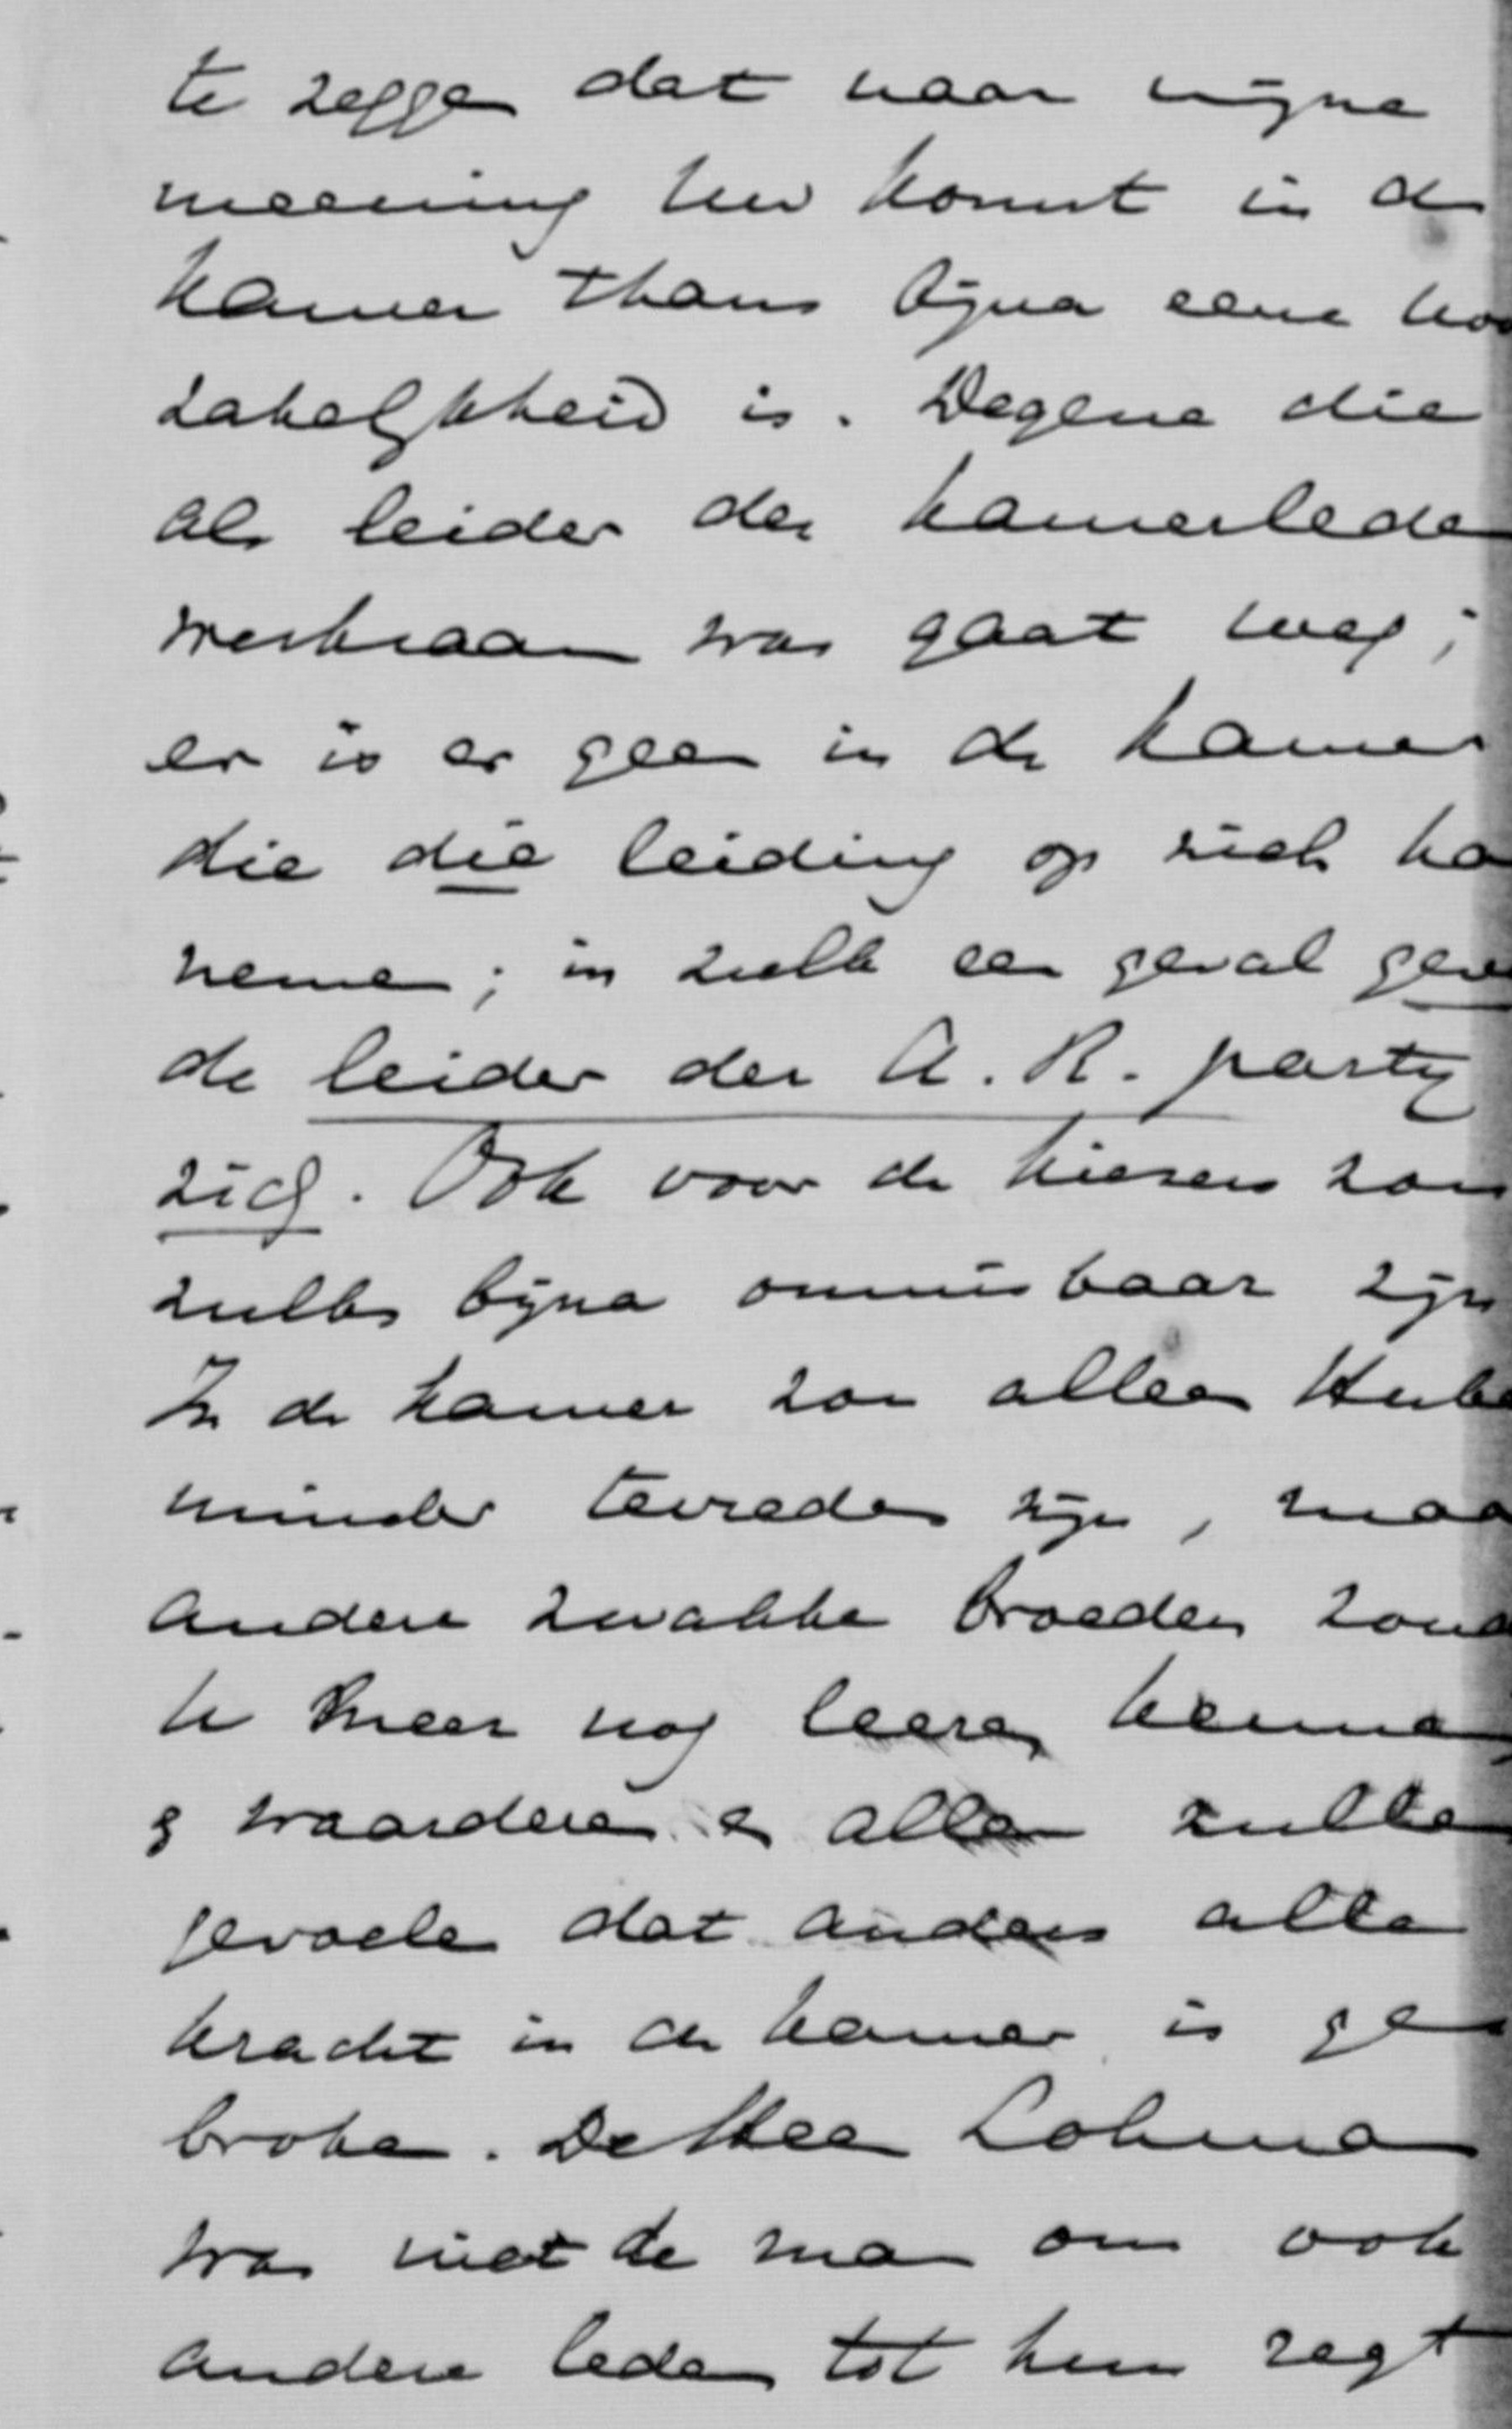 te zeggen dat naar mijne
meening Uw komst in de
kamer thans bijna eene noo
zakelijkheid is. Degene die
als leider der kamerleden
werkzaam was gaat weg;
en is er geen in de kamer
die die leiding op zich ka
nemen; in zulk een geval geve
de leider der A. R. partij
zich. Ook voor de kiezers zou
zulks bijna onmisbaar zijn
In de kamer zou alleen
minder tevreden zijn, maa
andere zwakke broeders zoud
U meer nog leeren kennen
& waardeeren en allen zullen
gevoelen dat anders alle
kracht in de kamer is ge
broken. De Heer Lohman
was niet de man om ook
andere leden tot hem zegt